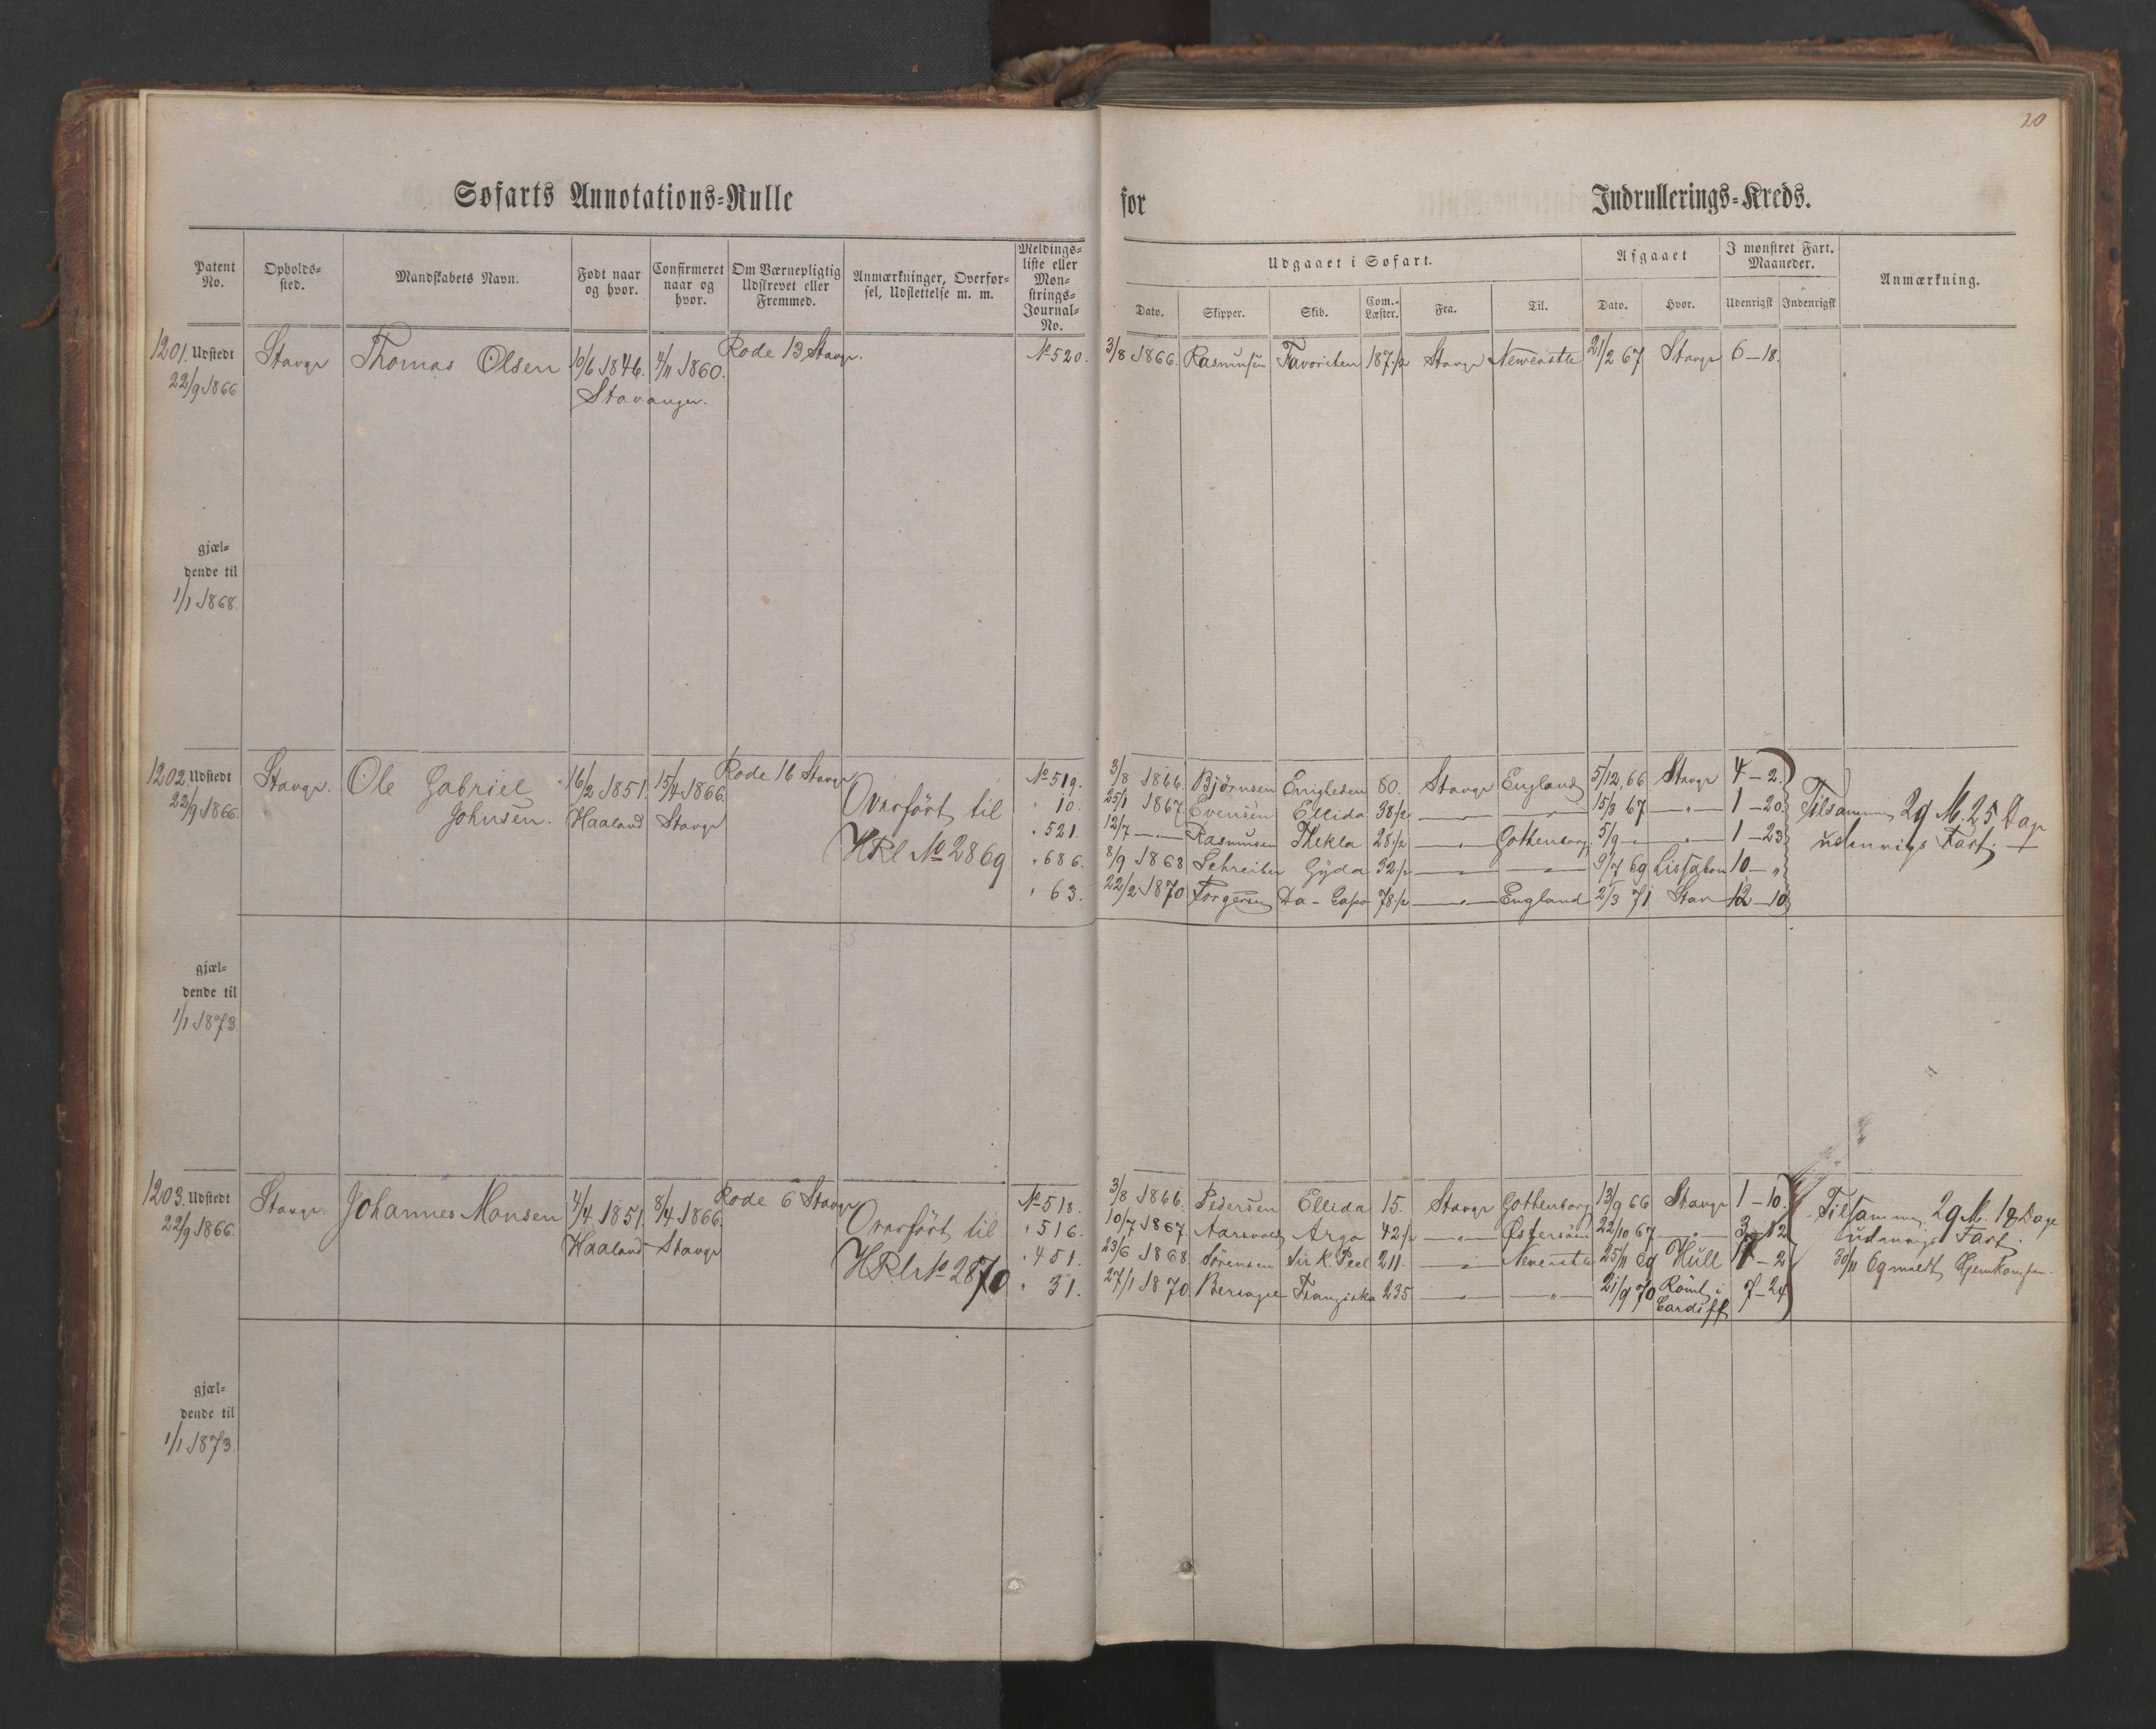 20
Søfarts Annotations=Rulle for Indrullerings=Kreds.
Patent No. Opholds=sted. Mandskabets Navn. Født naar og hvor. Confirmeret naar og hvor. Om Værnepligtig Udskrevet eller Fremmed. Anmærkninger, Overførsel, Udslettelse m. m. Meldings=liste eller Mønstrings=Journal=No.
Udgaaet i Søfart. Afgaaet I mønstret Fart. Maaneder. Anmærkning.
Dato. Skipper. Skib. Com.-Læster. Fra. Til. Dato. Hvor. Udenrigsk Indenrigsk
1201. Udstedt Stavgr Thomas Olsen 10/6 1846. 4/11 1860. Rode 13 Stavgr. No 520. 3/8 1866. Rasmusen Favoriten 187 1/2 Stavgr Newcastle 21/2 67 Stavgr 6-18.
22/9 1866 Stavanger.
gjæl=
dende til
1/1 1868.
1202. Udstedt Stavgr. Ole Gabriel 16/2 1851. 15/4 1866. Rode 16 Stavgr No 519. 3/8 1866. Bjørnsen Enigheden 80. Stavgr England 5/12 66 Stavgr 4-2.
22/9 1866. Johnsen. Haaland Stavgr Overført til " 10. 25/1 1867 Evensen Ellida 38 1/2 — " — — " — 15/3 67 — " — 1-20 Tilsammen 29 M. 25 Dage
HRl No 2869 " 521. 12/7 — " — Rasmusen Thekla 28 1/2 — " — Gothenborg 5/9 — " — " — 1-23 udenrigs Fart.
" 686. 8/9 1868 Schreiber Gyda 32 1/2 — " — — " — 9/7 69 Lissabon 10-"
" 63. 22/2 1870 Torgersen Da-Capo 78 1/2 — " — England 2/3 71 Stav 12-10
gjæl=
dende til
1/1 1873
1203. Udstedt Stavgr. Johannes Monsen 4/4 1851. 8/4 1866. Rode 6 Stavgr No 518. 3/8 1866. Pedersen Ellida 15. Stavgr Gothenborg 13/9 66 Stavgr 1-10.
22/9 1866. Haaland Stavgr Overført til " 516. 10/7 1867. Argo 42 1/2 — " — Østersøen 22/10 67 — " — 3-12 Tilsammen 29 M. 18 Dage
HRl No 2870 " 451. 23/6 1868. Sørensen Sir R. Peel 211. — " — Newcastle 25/11 69 Hull 17-2 udenrigs Fart.
" 31. 27/1 1870. Franziska 235 — " — — " — 21/9 70 Römt i 7-24 30/11 69 meldt Hjemkomsten.
Cardiff
gjæl=
dende til
1/1 1873.